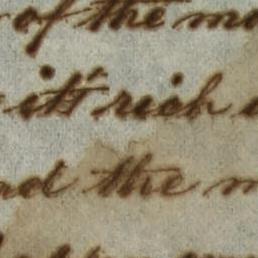 of the mo
it's rich
nd the m